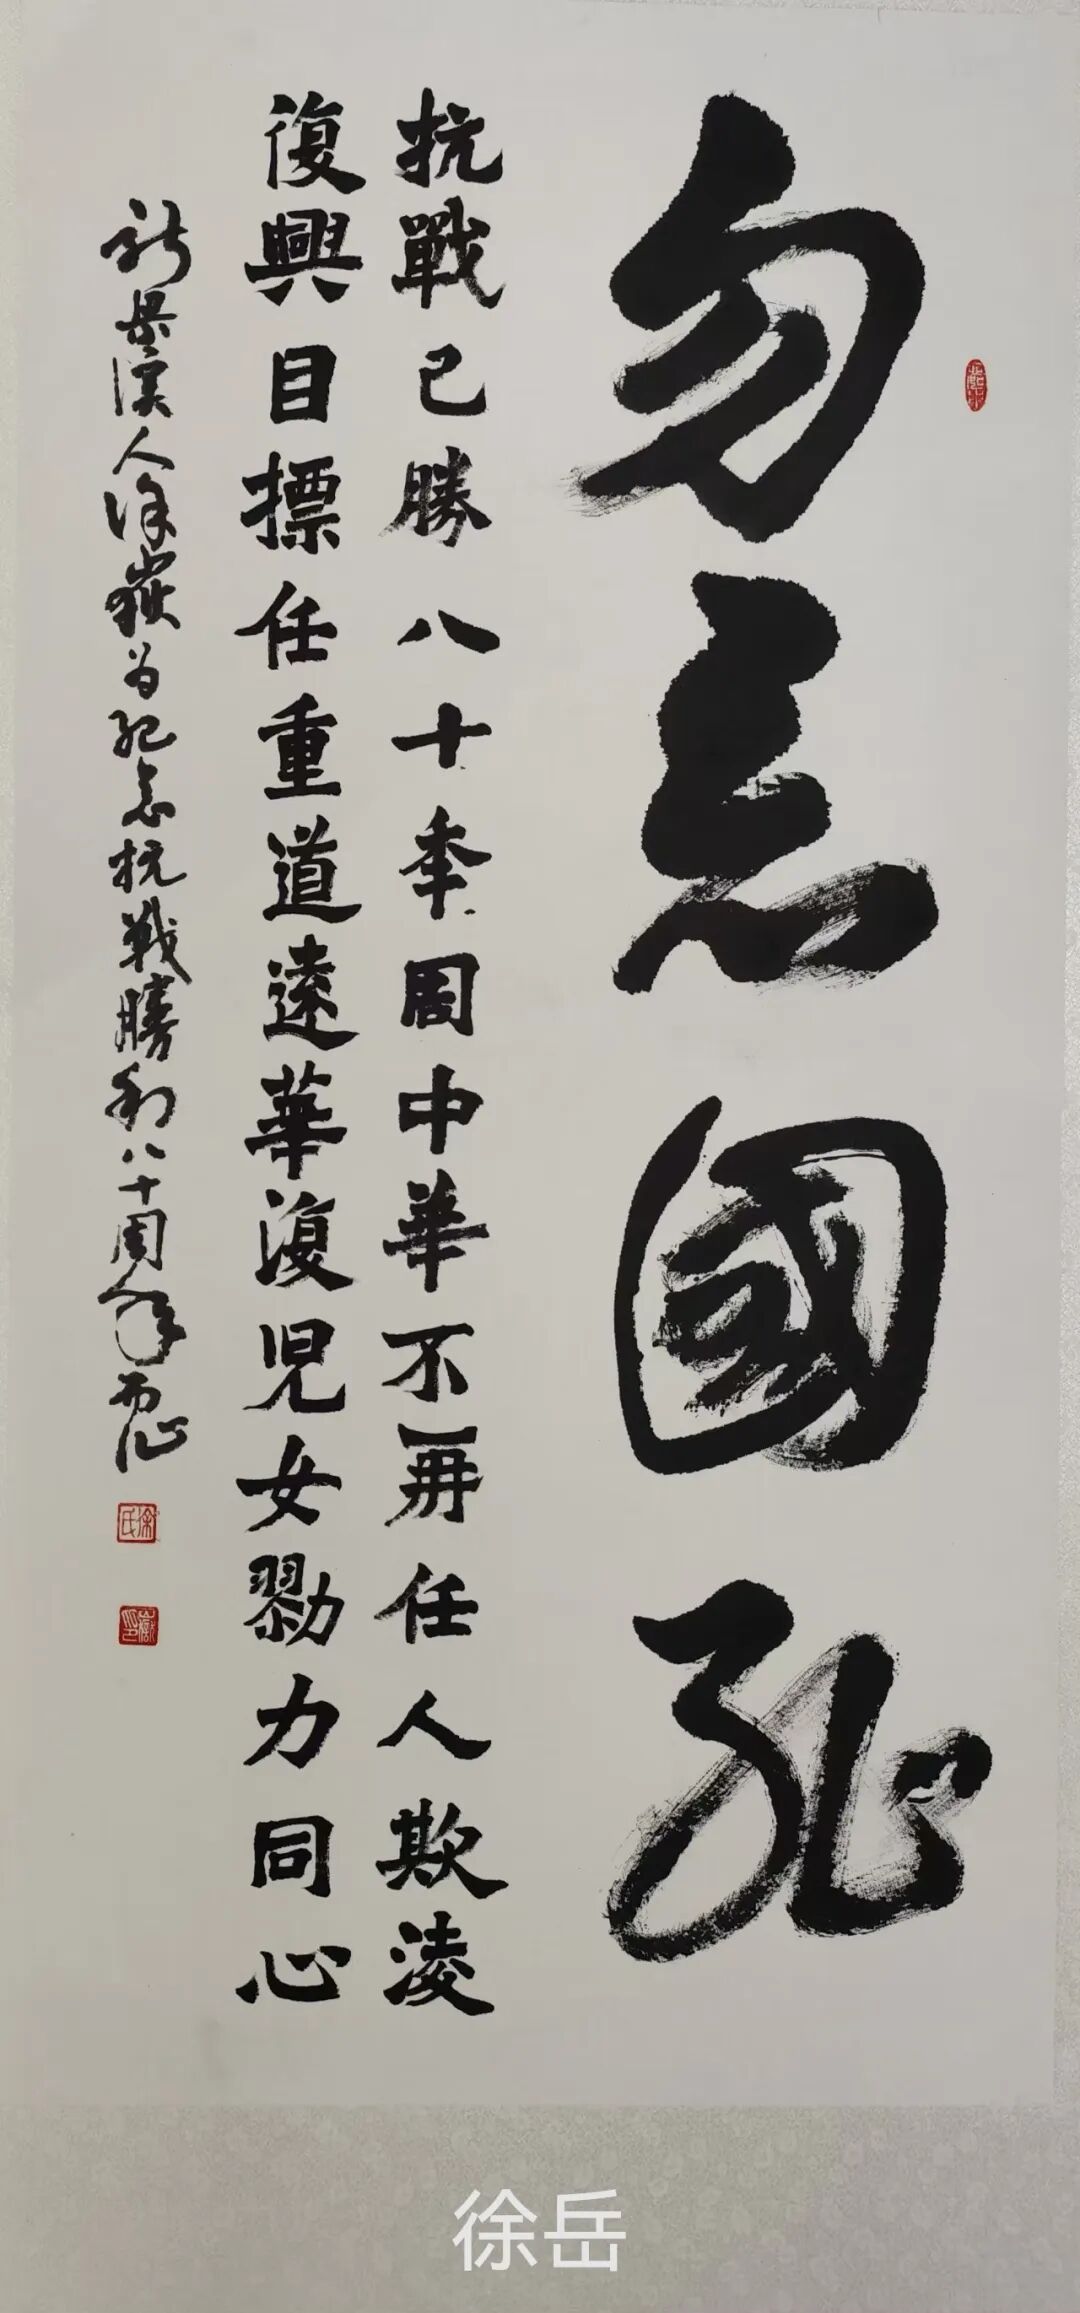 勿忘國耻
抗戰已勝八十秊周中華不再任人欺淩
復興目標任重道遠華復兒女勠力同心
人徐嶽为紀念抗戰勝利八十周年而作
徐氏
嶽印
徐岳